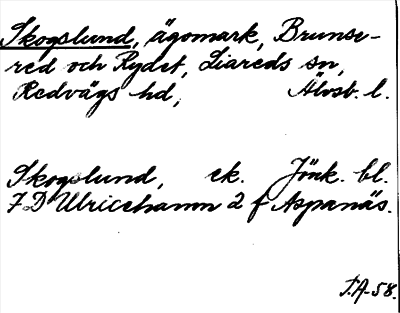 Skogslund, ägomark, Brunse-
red och Rydet, Liareds sn,
Redvägs hd, Älvsb. l.
Skogslund, ek. Jönk. bl.
7 D Ulricehamn 2 f Aspanäs.
T.A-58.